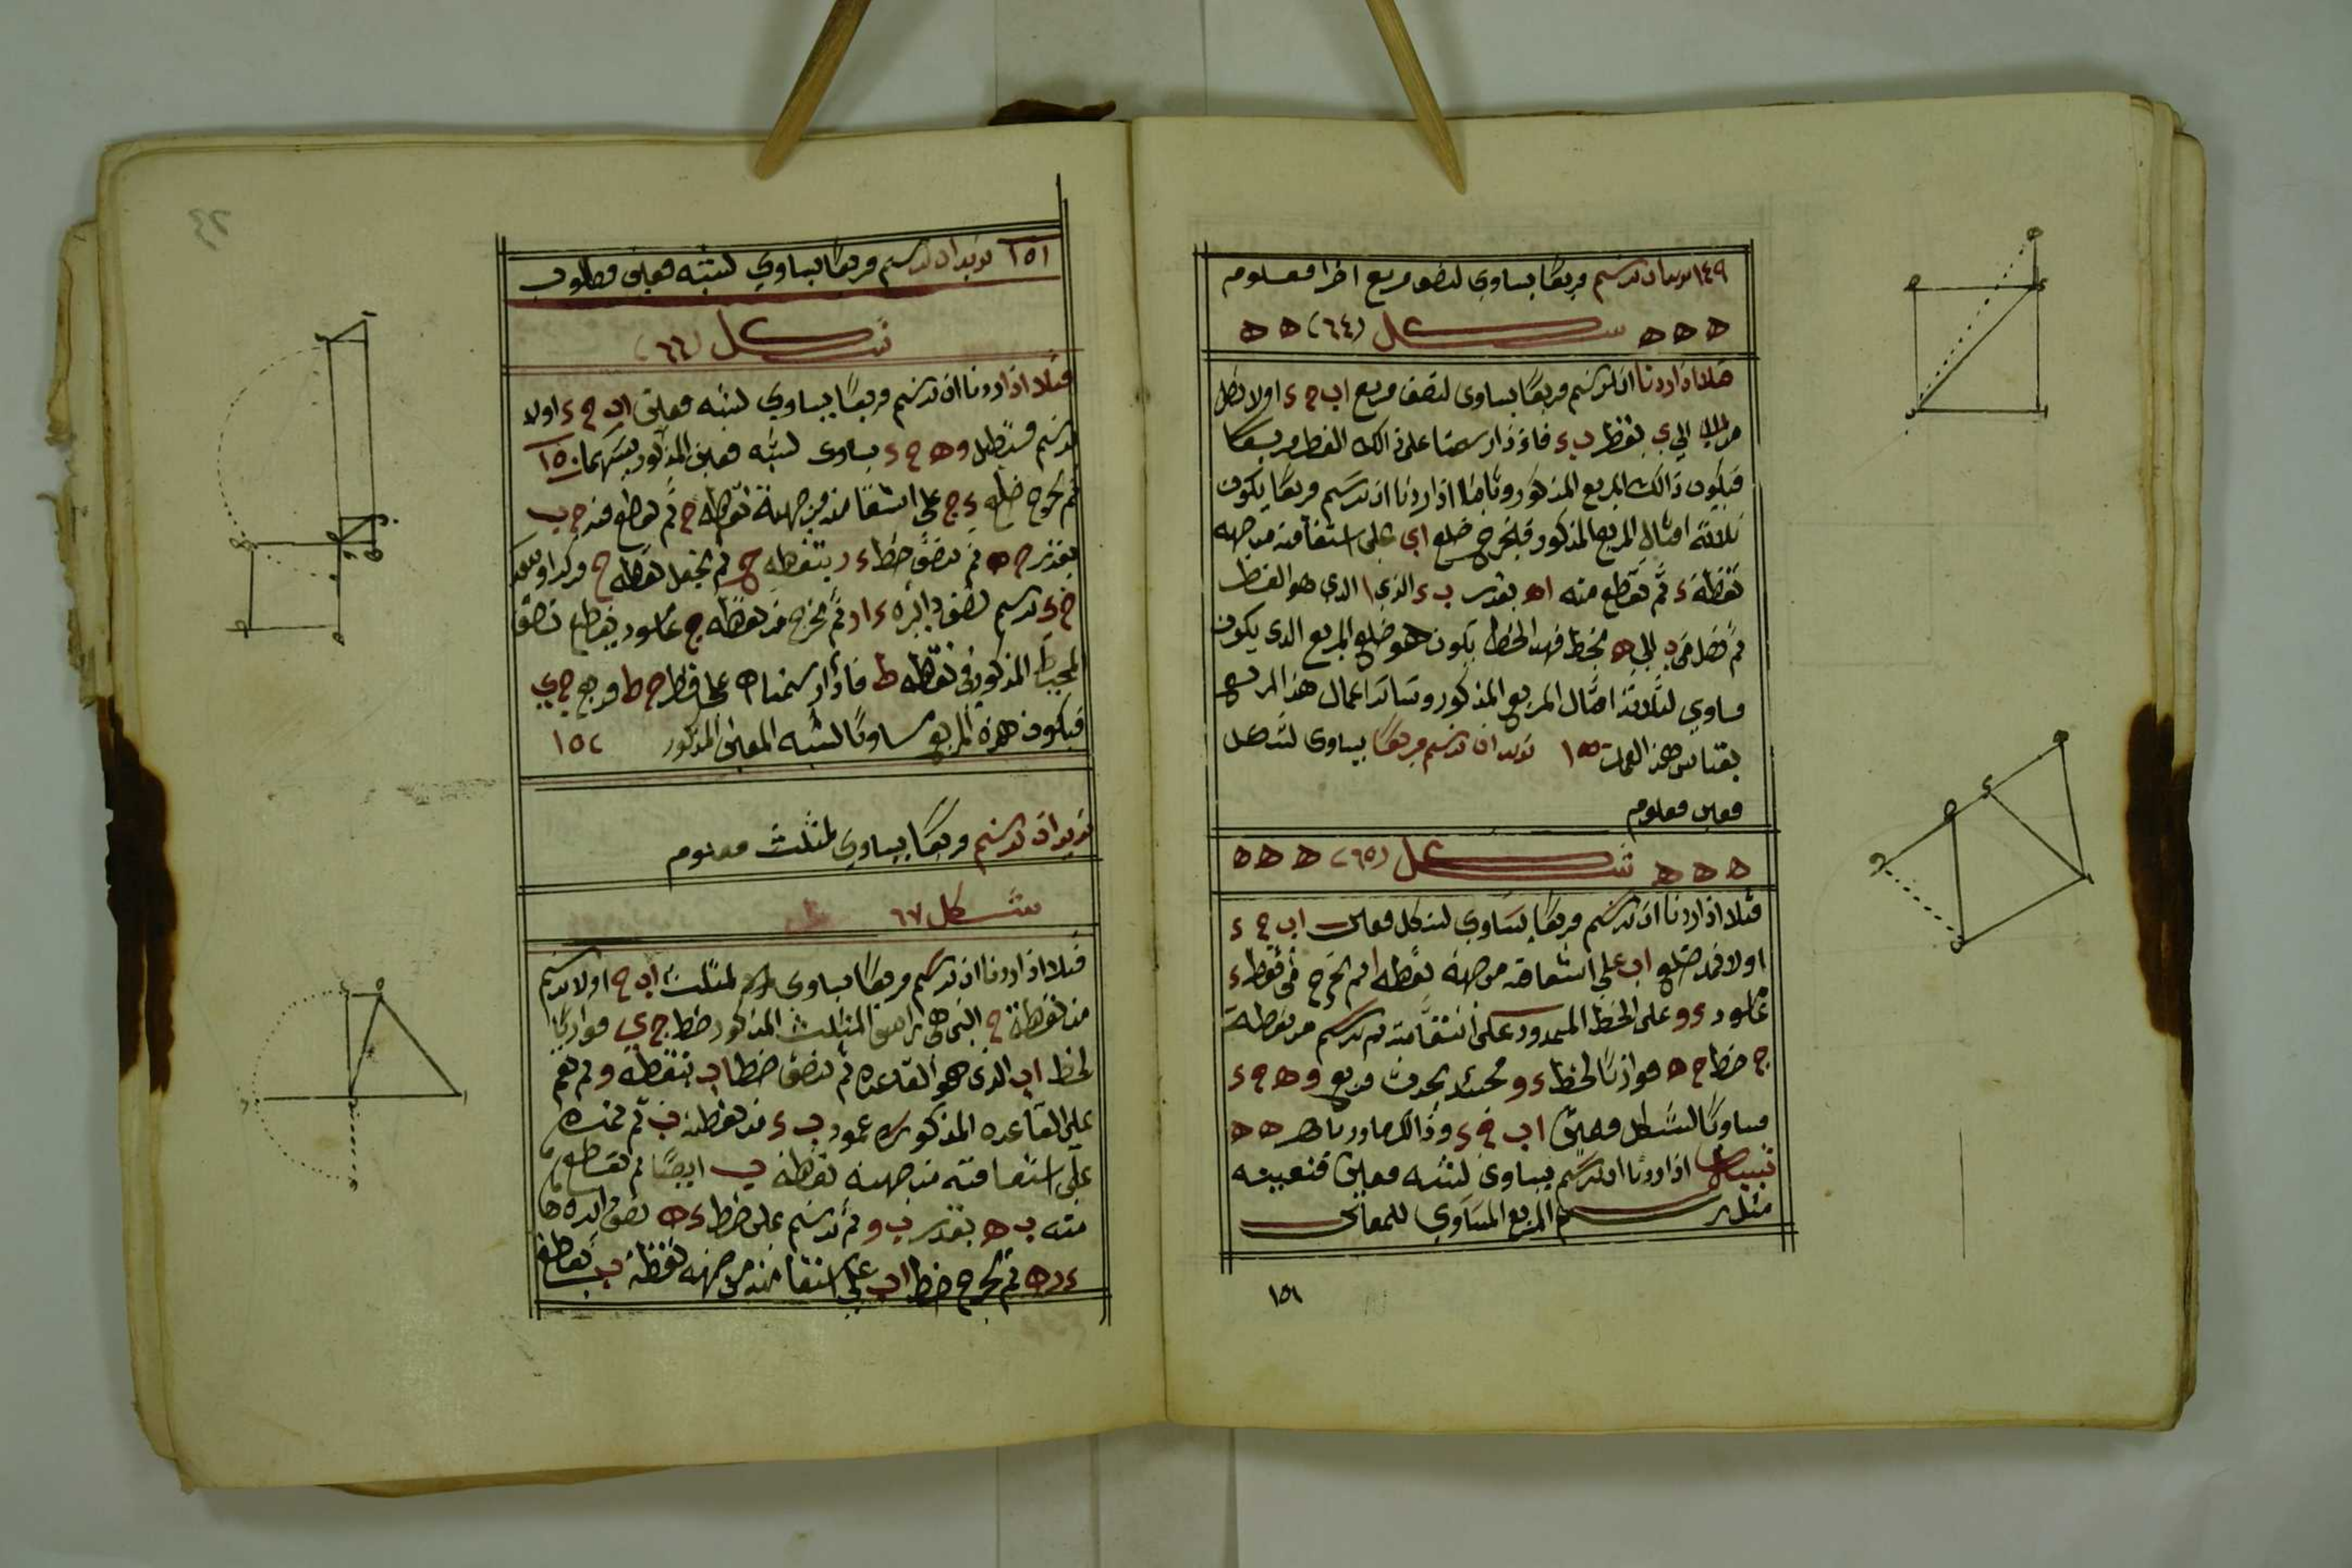 ١٤٩ نريد ان نرسم مربعًا يساوي لنصف مربع اخرا معلوم
ه ه ه شكل (٦٤) ه ه
مثلا اذا اردنا ان نرسم مربعًا يساوي لنصف مربع اب ج د اولا نصل
الي بخط ب د فاذ ذا رسمنا على ذالك القطر مربعًا
فيكون ذالك المربع المذكور وثامنا اذا اردنا ان نرسم مربعًا يكون
ثلاثة امثال المربع المذكور فنخرج ضلع اي على استقامته من جهه
نقطة د ثم نقطع منه اه بقدر ب د الذي الدي هو القطر
ثم نصل من ب الي ه بخط فهد الخط يكون هو ضلع المربع الدي يكون
مساوي لثلاثة امثال المربع المذكور وسائر اعمال هذ المربع
بقياس هذ العمل ١٥٠ نريد ان نرسم مربعًا يساوي لشكل
معين معلوم
ه ه ه شكل (٦٥) ه ه ه
مثلا اذا اردنا ان نرسم مربعًا يساوي لشكل معين اب ج د
اولا نمد ضلع اب على استقامته من جهة نقطه ا ثم نخرج من نقطه د
عامود د و على الخط الممدود على استقامته ثم نرسم من نقطة
ج خط ج ه موازيًا لخط د و فحينئد يحدث مربع و ه ج د
مساويًا لشكل معين اب ج د وذالك ما اردنا ه ه ه
تنبيه اذا اردنا ان نرسم يساوي لشبه معين فنعيبه
مثل رسم المربع المساوي للمعاين
١٥١
١٥١ نريد ان نرسم مربعًا يساوي لشبه معين مطلوب
شكل (٦٦)
مثلا اذا اردنا ان نرسم مربعًا يساوي لشبه معين اب ج د اولا
نرسم مستطيل و ه ج د يساوي لشبه معين المذكور ١٥٠
ثم نخرج ضلع د ج على استقامته من جهة نقطه ج ثم نقطع منه ج ب
بقدر ج ه ثم ننصف خط د ر بنقطه ح ثم نجعل نقطه ح مركزا
ح د نرسم نصف دائره د ا ر ثم نخرج من نقطه ج عامود يقطع نصف
المحيط المذكور في نقطه ط فاذا رسمنا على خط ج ط مربع ج ي
فيكون هذه المربع مساويًا لشبه المعين المذكور ١٥٢
نريد ان نرسم مربعًا يساوي لمثلث معلوم
شكل ٦٧
مثلا اذا اردنا ان نرسم مربعًا يساوي لمثلث اب ج اولا نرسم
من نقطة ج التي هي راس المثلث المذكور خط ج ي موازيًا
لخط اب الذي هو القاعده ثم ننصف خط اب بنقطه و ثم نقم
على القاعده المذكوره عمود ب د من نقطة ب ثم نمده
على استقامته من جهة نقطة ب ايضًا ثم نقطع
منه ب ه بقدر ب و ثم نرسم على خط د ه نصف دائره
د ر ه ثم نخرج خط اب على استقامته من جهة نقطة ب يقطع